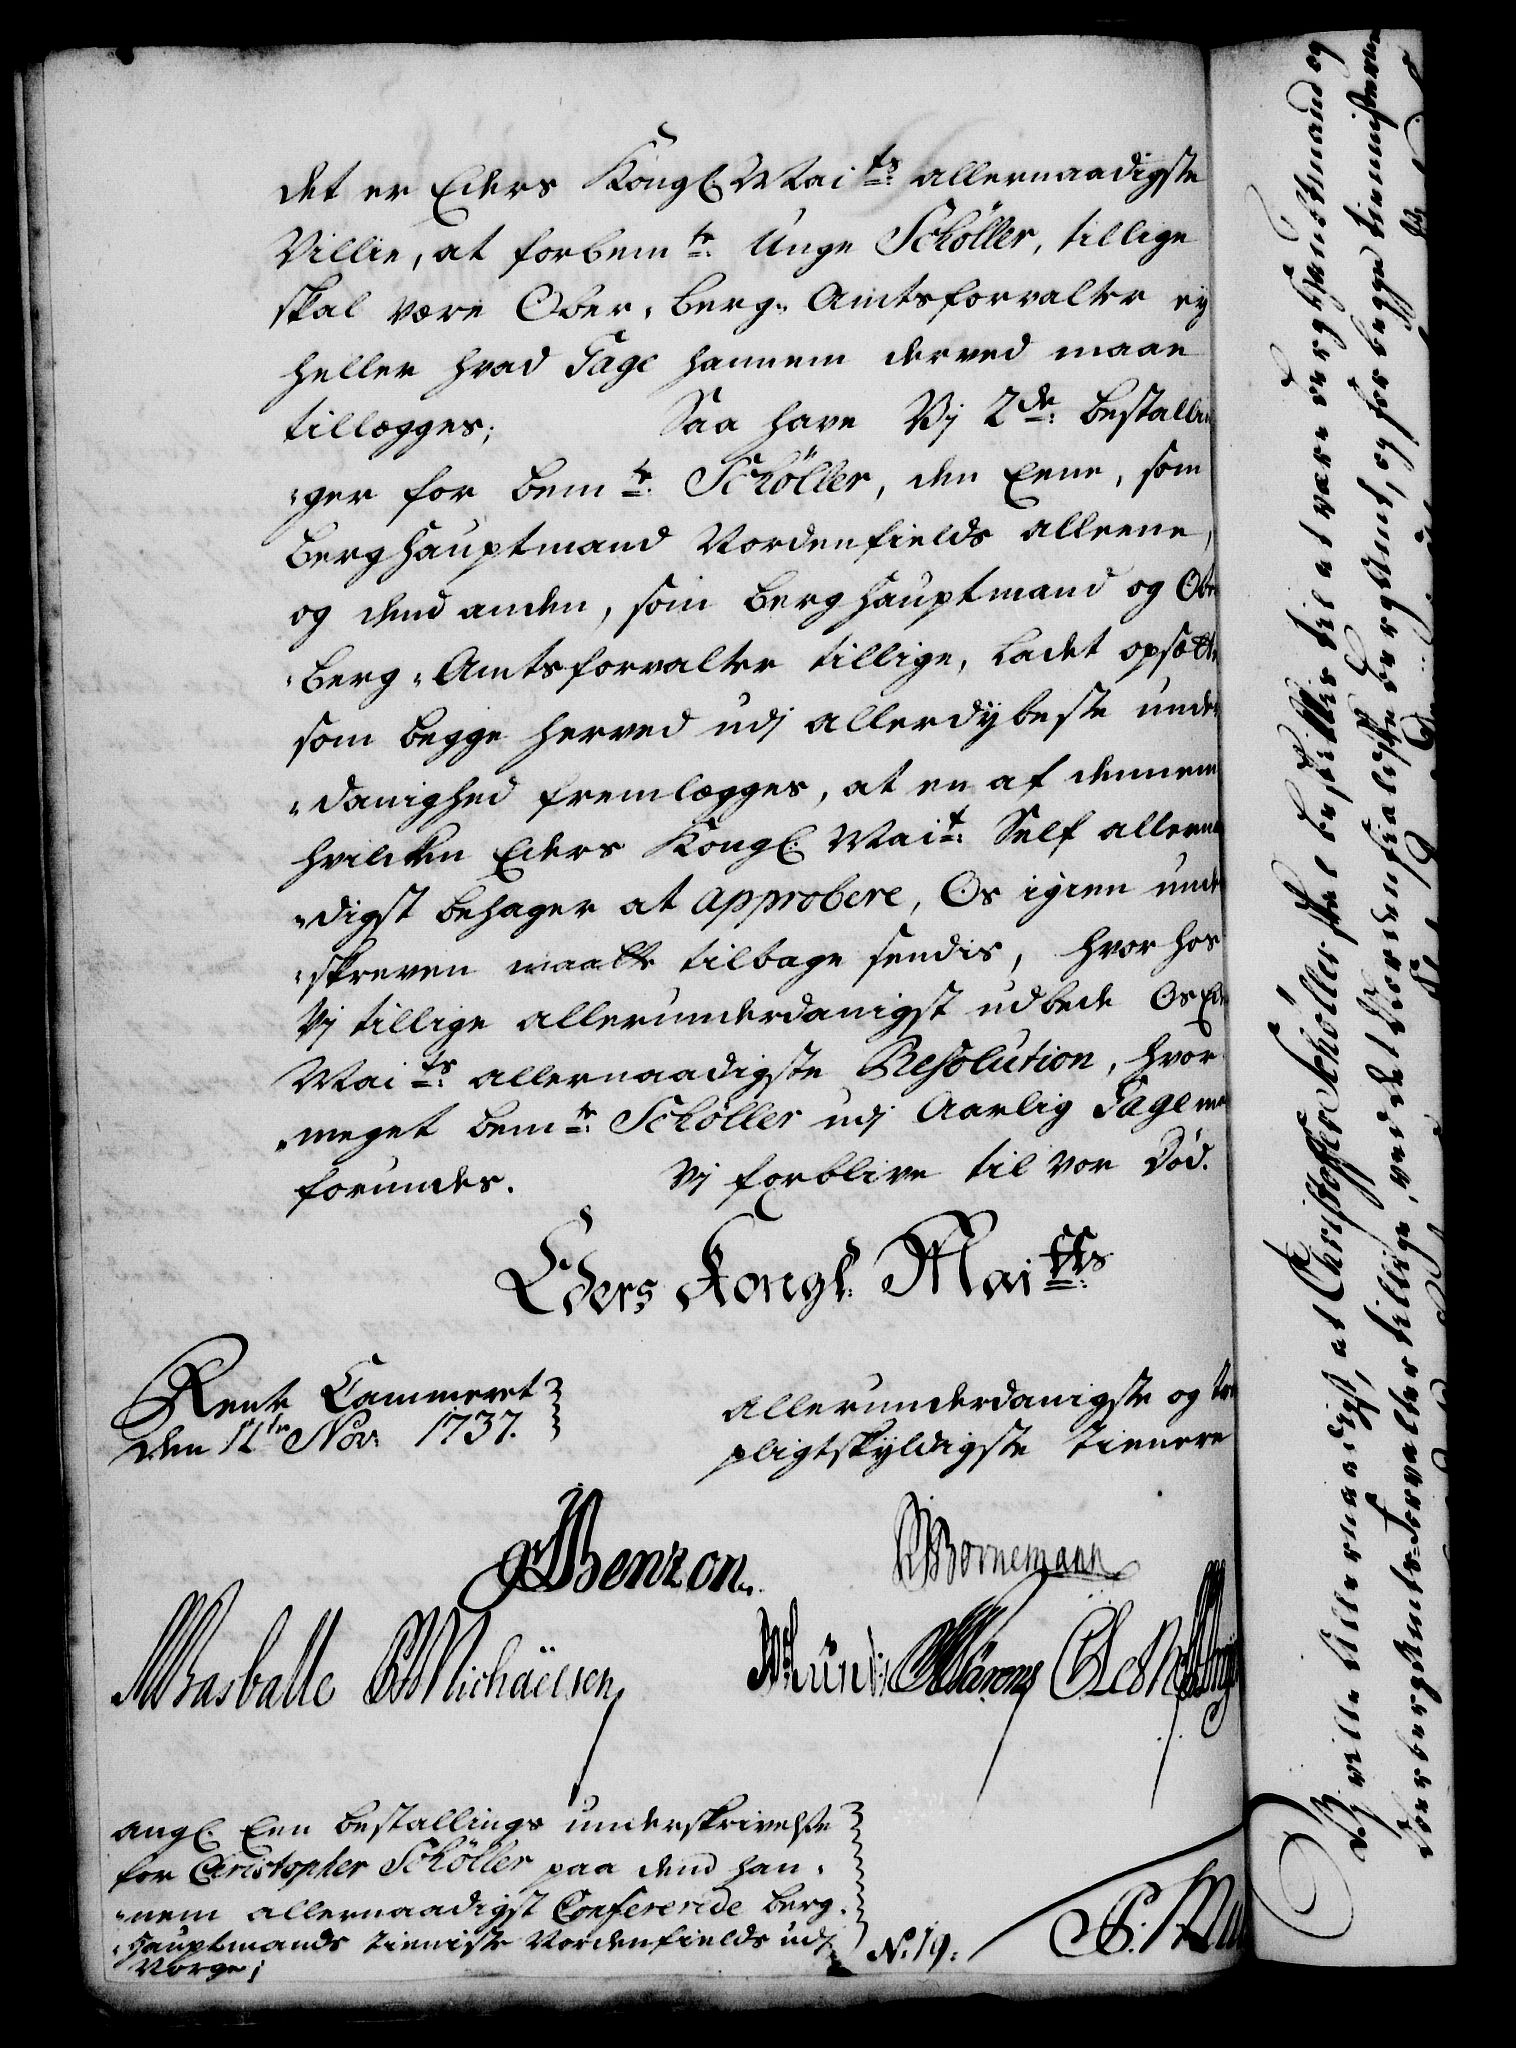 det er Eders Kongl. Maits allernaadigste
Villie, at forbemte Unge Schøller, tillige
skal være Ober-Berg-Amtsforvalter ey
heller hvad Gage hannem derved maae
tillægges; Saa have Vj 2de Bestallin
-ger for bemte Schøller, den Eene, som
Berghauptmand Nordenfields alleene,
og dend anden, som Berghauptmand og Ober
-Berg-Amtsforvalter tillige, ladet opsætte
som begge herved udj allerdybeste under
-danighed fremlægges, at en af dennem
hvilcken Eders Kongl. Mait. Self allernaa
-digst behager at approbere, Os igien under
-skreven maatte tilbage sendis, hvorhos
Vj tillige allerunderdanigst udbede Os Eders
Maits allernaadigste Resolution, hvor
-meget bemte Schøller udj Aarlig Gage maae
forundes. Vj forblive til vor Død.
Eders Kongl. Maitts
Rente Cammeret
den 11te Nov. 1737.
allerunderdanigste og troe
pligtskyldigste Tienere
Benzon
Bornemann
Basballe Michaëlsen
ang. Een Bestallings underskrivelse
for Christopher Schøller paa dend han-
-nem allernaadigst Confererede Berg-
-Hauptmands Tieniste Nordenfields udj
Norge;
No. 19.
Vj ville allernaadigst, at Christoffer Schøller skal bestilles til at være Berghauptmand og
Oberbergamts-Forvalter tillige, ved det Nordenfialdske Bergamt, og for begge Tiennisterne